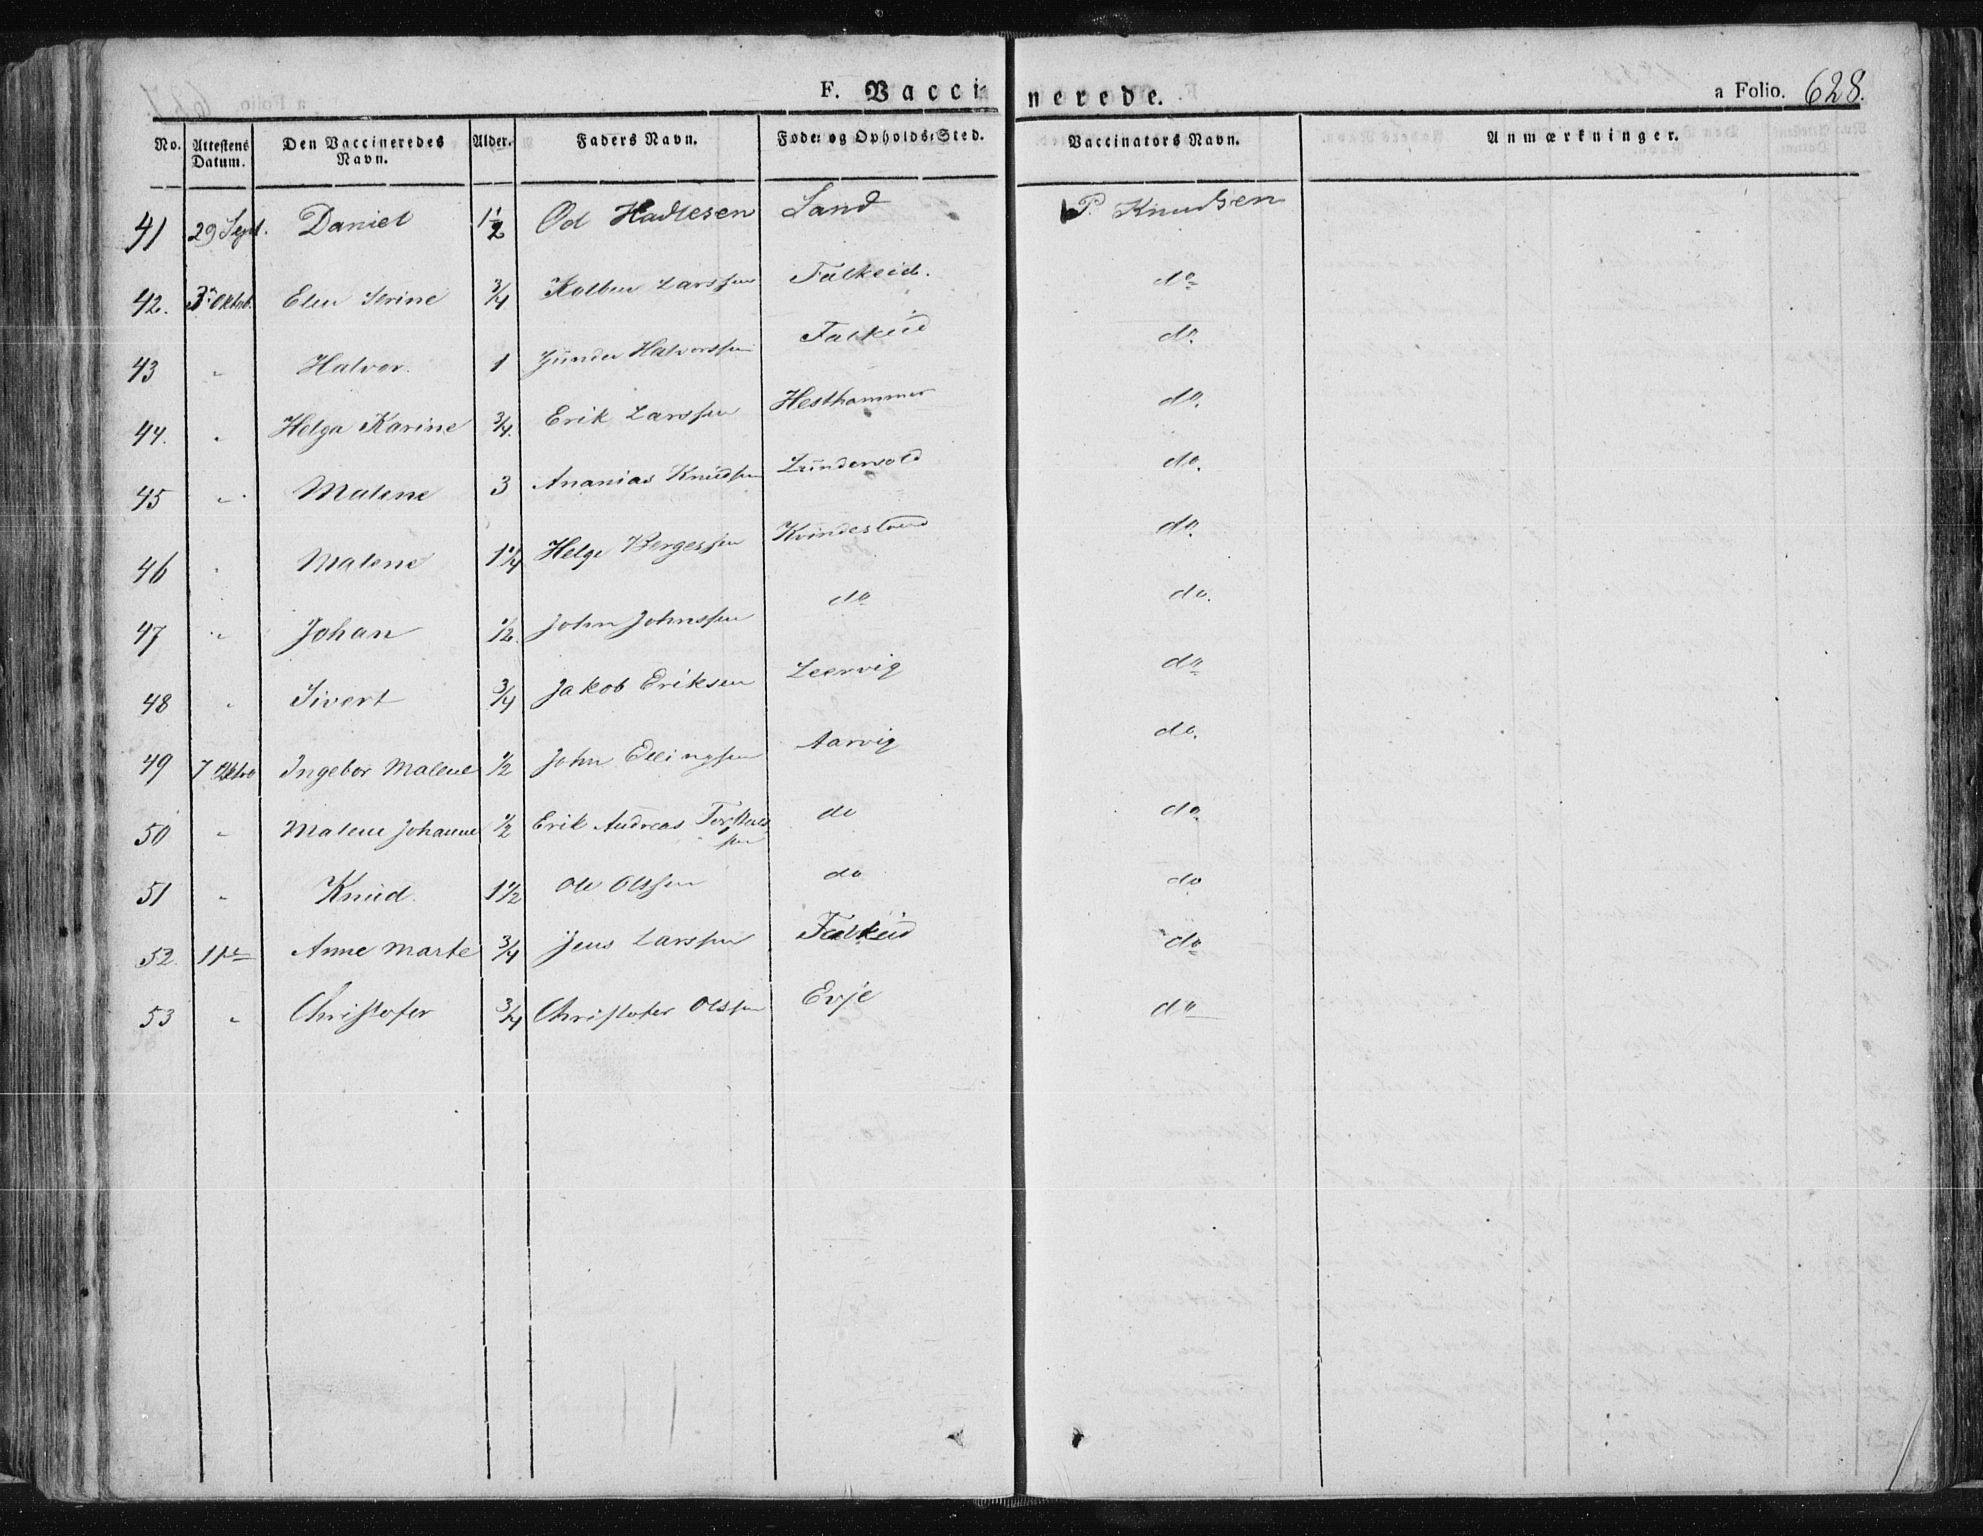 F. Vaccinerede. a Folio. 628.
No. Attestens Datum. Den Vaccineredes Navn. Alder. Faders Navn. Føde- og Opholds-Sted. Vaccinators Navn. Anmærkninger.
41 29 Sept. Daniel 1 1/2 Od Land P. Knudsen
42. 3 Oktob. Elen Serine 3/4 Larssen Falkeid. do
43 " Halvor. 1 Gunder Halvorssen Falkeid do.
44. " Helga Karine 3/4. Erik Larssen Hesthammer do.
45 " Malene 3 Ananias Knudsen Lundervold do.
46 " Malene 1 1/4 Helge Børgessen Kvindesland do.
47 " Johan 1/2. John Johnssen do do.
48 " Sivert 3/4 Jakob Eriksen Leervig do
49 7 Oktbr Ingebor Malene 1/2 John Ellingsen Aarvig do.
50 " Malene Johanne 1/2 Erik Andreas do do.
51 " Knud. 1 1/2 Ole Olssen do do
52. 11te Anne Marte 3/4 Jens Larssen Falkeid do
53 " Christofer 3/4 Christofer Olssen Evje do